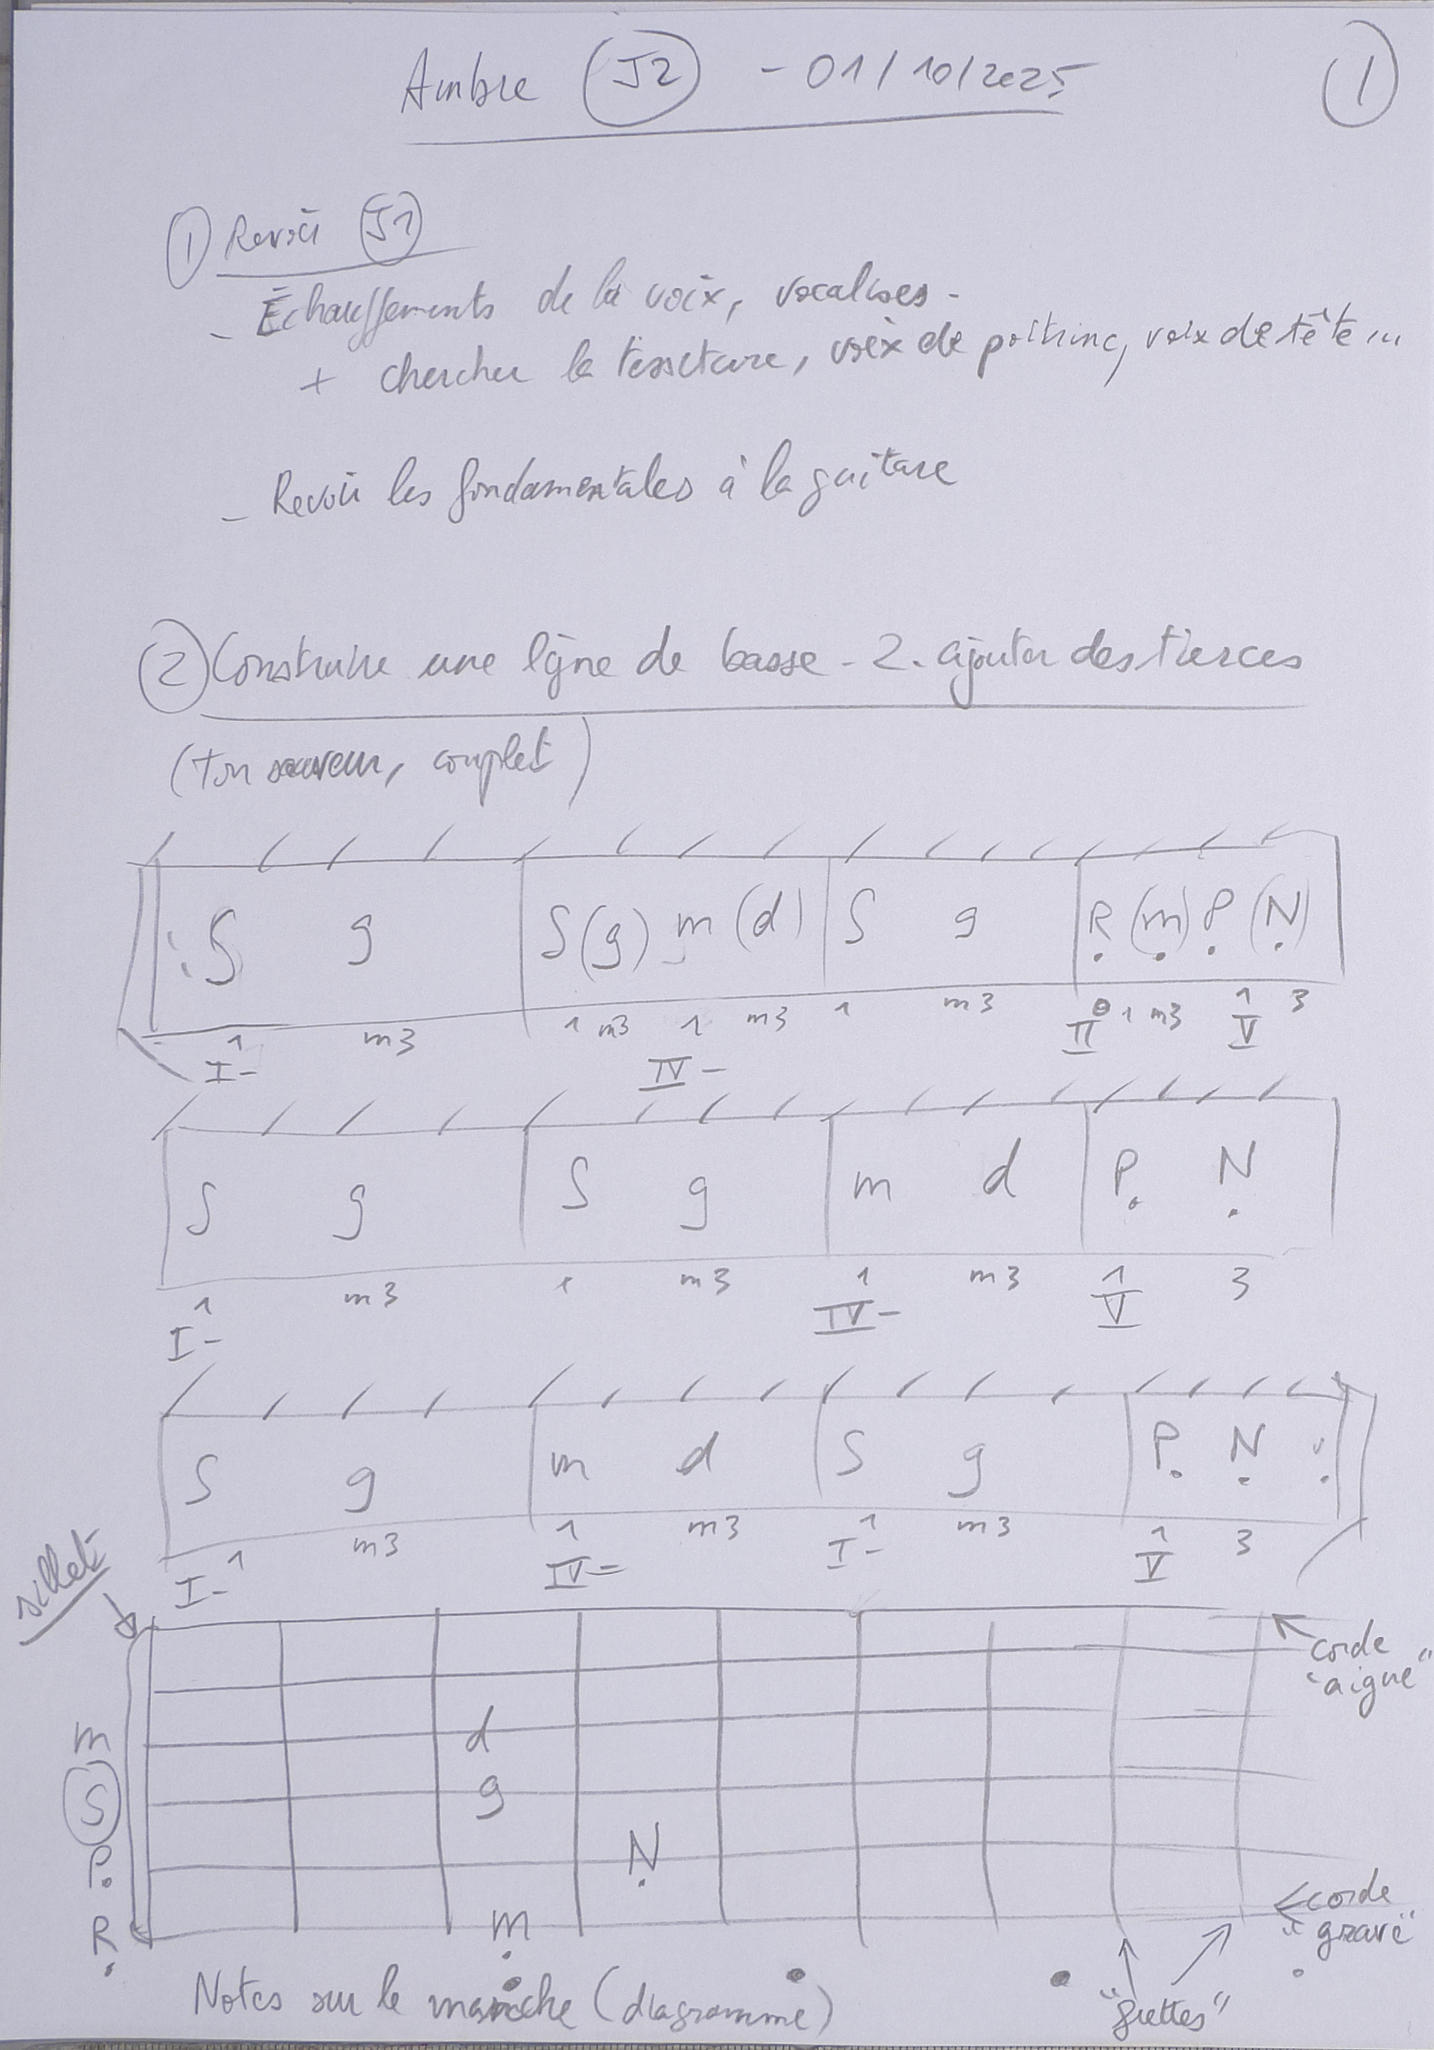 Ambre J2 - 01/10/2025 1
1 Revoir J1
- Échauffements de la voix, vocalises -
+ chercher la tessiture, voix de poitrine, voix de tête ...
- Revoir les fondamentales à la guitare
2 Construire une ligne de basse - 2. ajouter des tierces
(Ton sauveur, couplet)
S g S(g) m (d) S g R (m) P (N)
1 m3 1 m3 1 m3 1 m3 1 m3 1 3
I- IV- II V
S g S g m d P N
1 m3 1 m3 1 m3 1 3
I- IV- V
S g m d S g P N
1 m3 1 m3 1 m3 1 3
I- IV- I- V
sillet
corde "aigue"
m d
S g
P N
R m
corde "grave"
"frettes"
Notes sur le manche (diagramme)